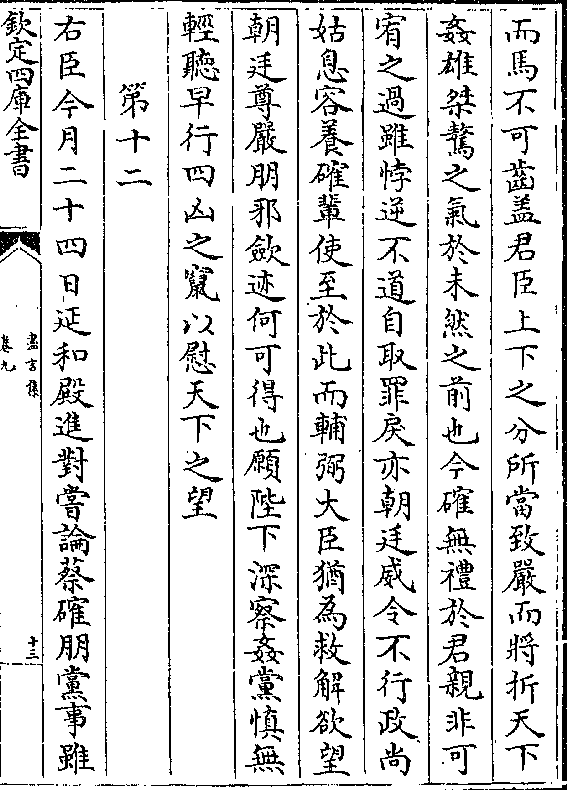 而馬不可齒盖君臣上下之分所當致嚴而將折天下
姦雄桀驁之氣於未然之前也今確無禮於君親非可
宥之過雖悖逆不道自取罪戾亦朝廷威令不行政尚
姑息容養確輩使至於此而輔弼大臣猶為救解欲望
朝廷尊嚴朋邪歛迹何可得也願陛下深察姦黨慎無
輕聽早行四凶之竄以慰天下之望
第十二
右臣今月二十四日延和殿進對嘗論蔡確朋黨事雖
欽定四庫全書
盡言集
卷九
十三